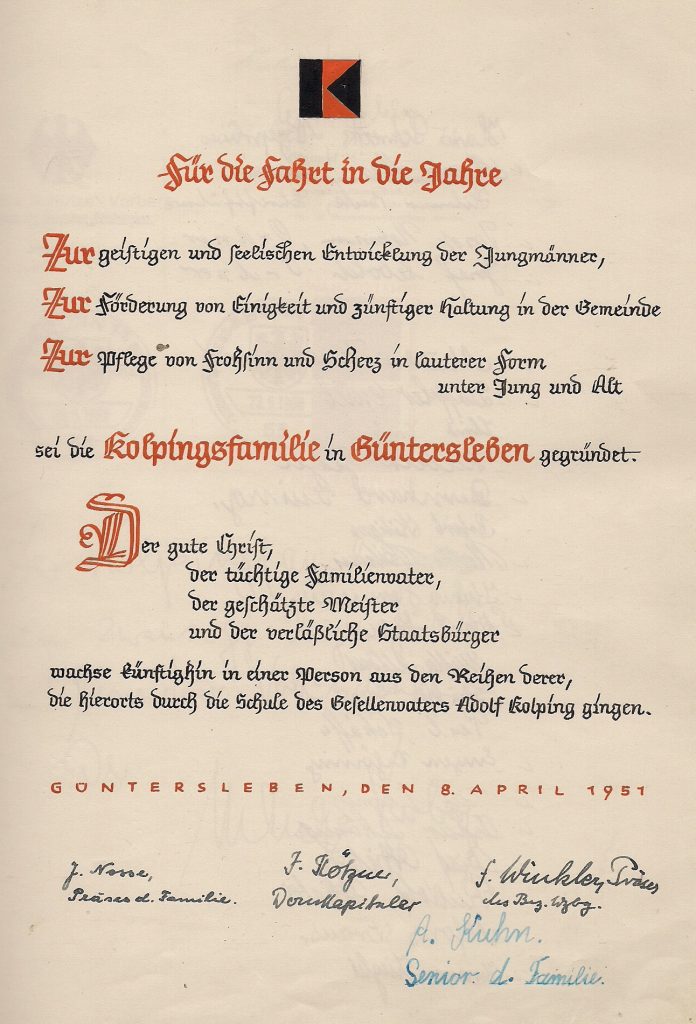 K
Für die Fahrt in die Jahre
Zur geistigen und seelischen Entwicklung der Jungmänner,
Zur Förderung von Einigkeit und zünftiger Haltung in der Gemeinde
Zur Pflege von Frohsinn und Scherz in lauterer Form
unter Jung und Alt
sei die Kolpingsfamilie in Güntersleben gegründet.
Der gute Christ,
der tüchtige Familienvater,
der geschätzte Meister
und der verläßliche Staatsbürger
wachse künftighin in einer Person aus den Reihen derer,
die hierorts durch die Schule des Gesellenvaters Adolf Kolping gingen.
GÜNTERSLEBEN, DEN 8. APRIL 1951
J. Nosse, J. Kötzner, J. Winkler, Präses
Präses d. Familie. Domkapitular des Bez. Wzbg.
A. Kuhn.
Senior d. Familie.